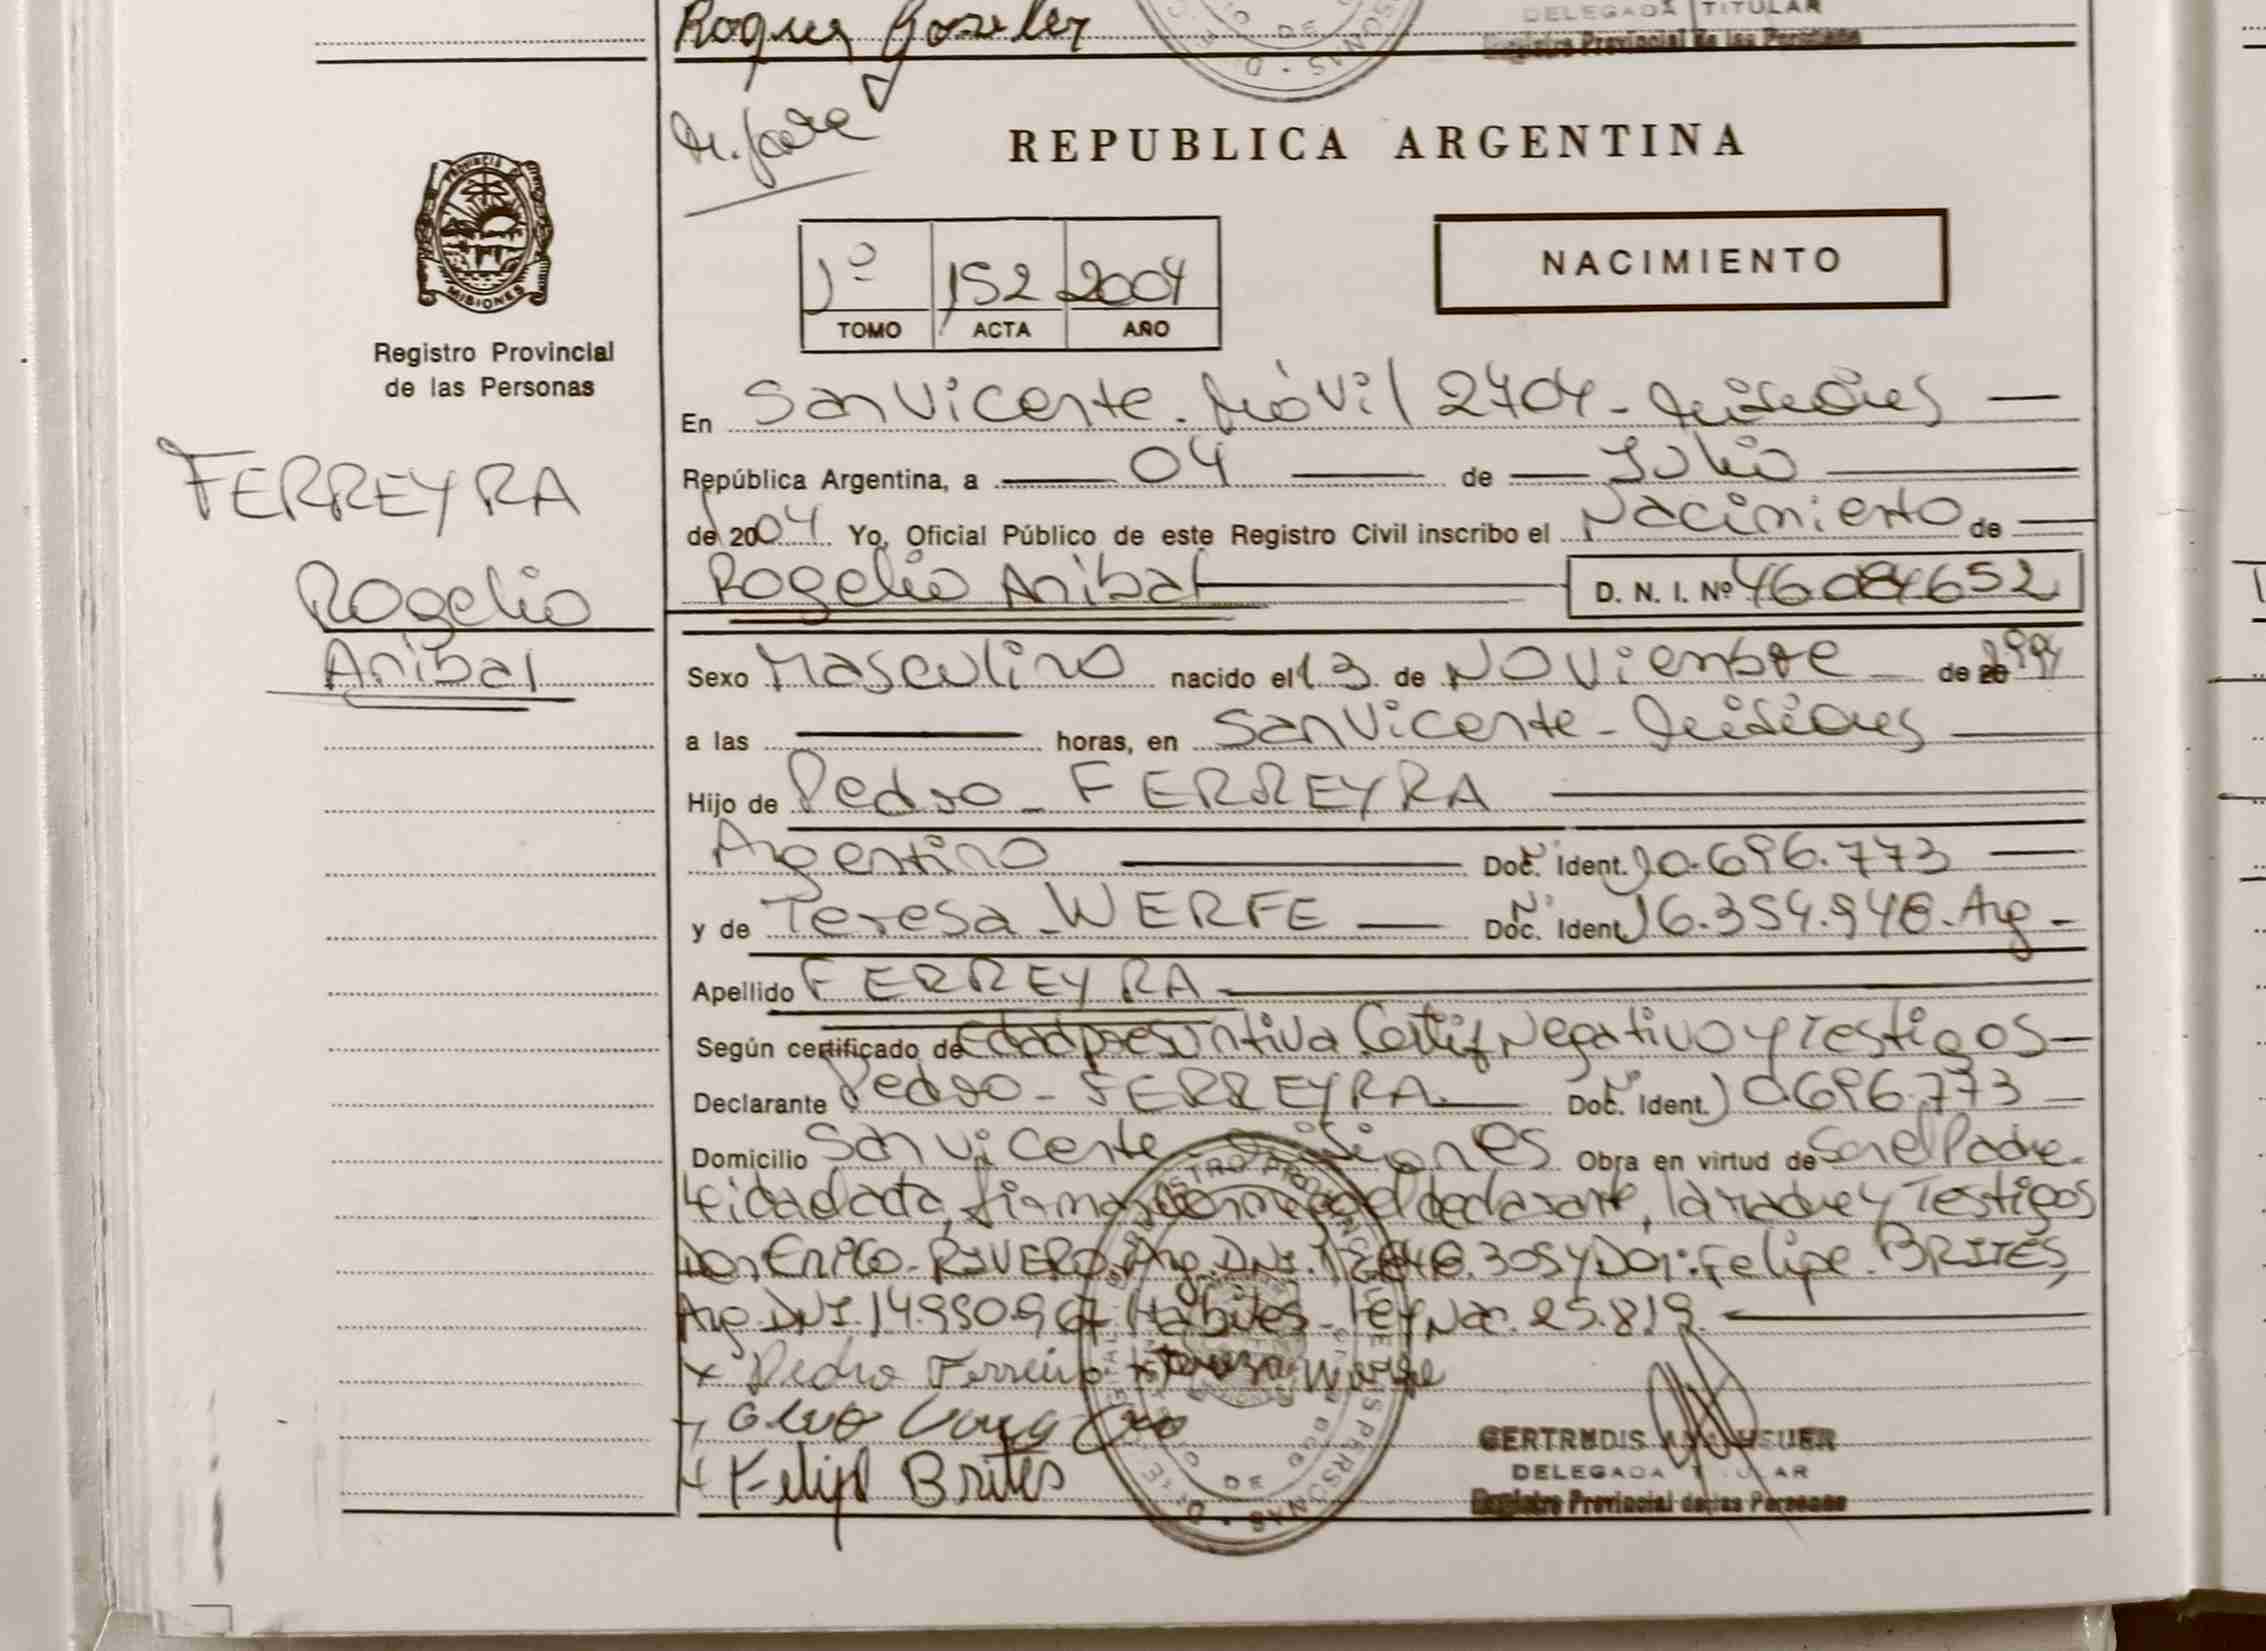 Roque
DELEGADA TITULAR
Registro Provincial de las Personas
REPUBLICA ARGENTINA
PROVINCIA
MISIONES
Registro Provincial
de las Personas
FERREYRA
Rogelio
Anibal
1º 152 2004
TOMO ACTA AÑO
NACIMIENTO
En San Vicente. Móvil 2404 - Misiones
República Argentina, a 04 de Julio
de 2004 Yo, Oficial Público de este Registro Civil inscribo el Nacimiento de
Rogelio Anibal D. N. I. Nº 46.084.652
Sexo Masculino nacido el 13 de NOViembre de 1994
a las horas, en San Vicente - Misiones
Hijo de Pedro - FERREYRA
Argentino Doc. Ident. 10.696.773
y de Teresa - WERFE Doc. Ident. 16.354.948 - Arg -
Apellido FERREYRA
Según certificado de Edad presuntiva Certif Negativo y Testigos
Declarante Pedro - FERREYRA Doc. Ident. 10.696.773
Domicilio San Vicente - Misiones Obra en virtud de Ser el Padre.
Leida el acta, firman conmigo el declarante, la madre y Testigos
Don RIVERO, Arg. DNI. y Don: Felipe BRITES,
Arg. DNI. 14.950.967 Hábiles - Ley Nac. 25.819
x Pedro Ferreira x Tereza Werfe
x Felipe Brites
GERTRUDIS
DELEGADA TITULAR
Registro Provincial de las Personas